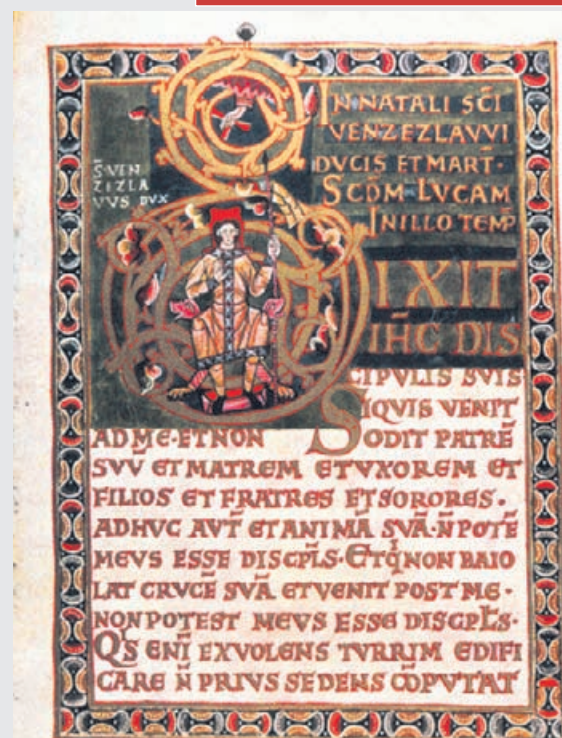 IN NATALI SC̄I
VENZEZLAVVI
DVCIS ET MART·
SCD̄M LVCAM
IN ILLO TEMP̄
S̄·VEN
ZEZLA
VVS DVX
DIXIT
IH̄C DIS
CIPVLIS SVIS
SIQVIS VENIT
AD ME·ET NON ODIT PATRĒ
SVV̄ ET MATREM ET VXOREM ET
FILIOS ET FRATRES ET SORORES·
ADHVC AVT̄ ET ANIMĀ SVĀ·N̄ POTĒ
MEVS ESSE DISCPL̄S·ET Q̄I NON BAIO
LAT CRVCĒ SVĀ ET VENIT POST ME·
NON POTEST MEVS ESSE DISCPL̄S·
QIS ENĪ EX VOLENS TVRRIM EDIFI
CARE N̄ PRIVS SEDENS CŌPVTAT